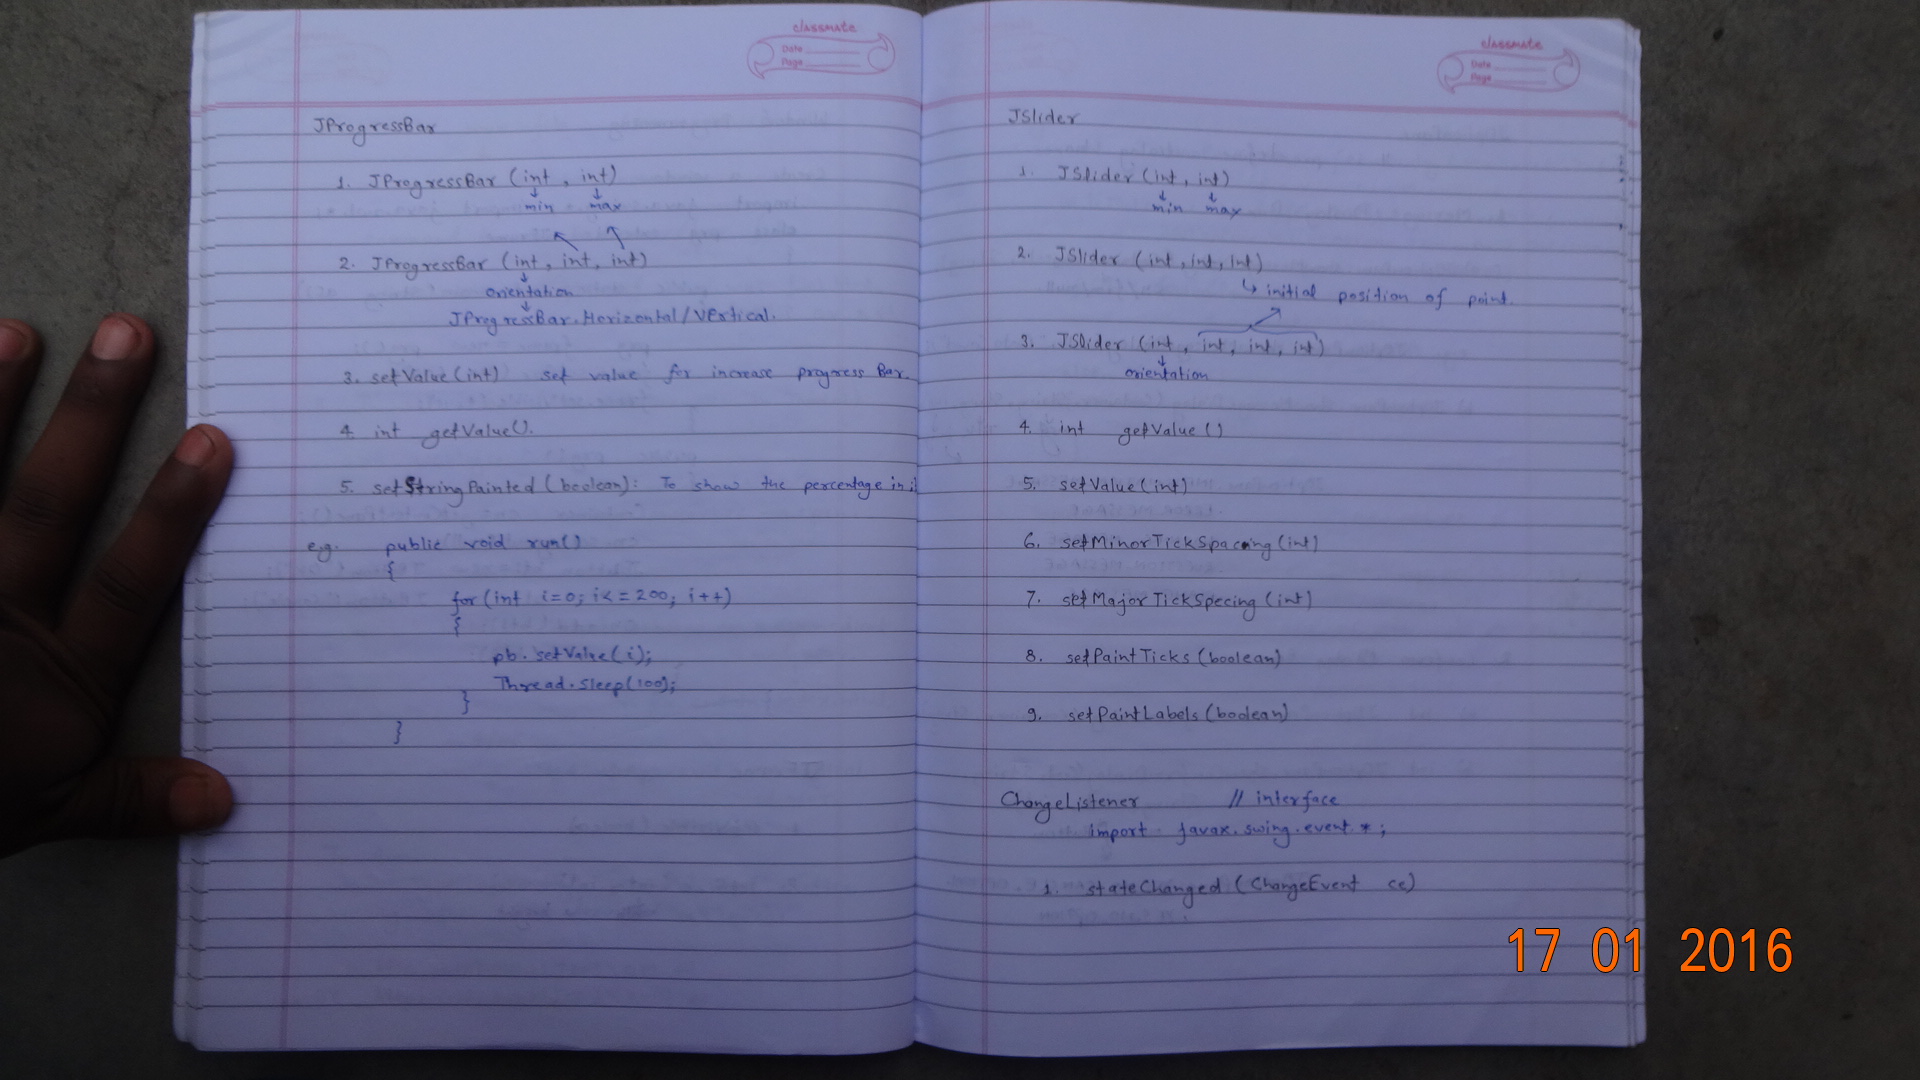 classmate
Date
Page
JProgressBar
1. JProgressBar (int, int)
min max
2. JProgressBar (int, int, int)
orientation
JProgressBar.Horizontal/Vertical.
3. setValue(int) set value for increase progress Bar.
4 int getValue().
5. setStringPainted (boolean): To show the percentage in
e.g. public void run()
{
for(int i=0; i<=200; i++)
{
pb.setValue(i);
Thread.sleep(100);
}
}
classmate
Date
Page
JSlider
1. JSlider (int, int)
min max
2. JSlider (int, int, int)
initial position of point.
3. JSlider (int, int, int, int)
orientation
4. int getValue()
5. setValue(int)
6. setMinorTickSpacing(int)
7. setMajorTickSpecing(int)
8. setPaintTicks (boolean)
9. setPaintLabels (boolean)
ChangeListener // interface
import javax.swing.event.*;
1. stateChanged (ChangeEvent ce)
17 01 2016